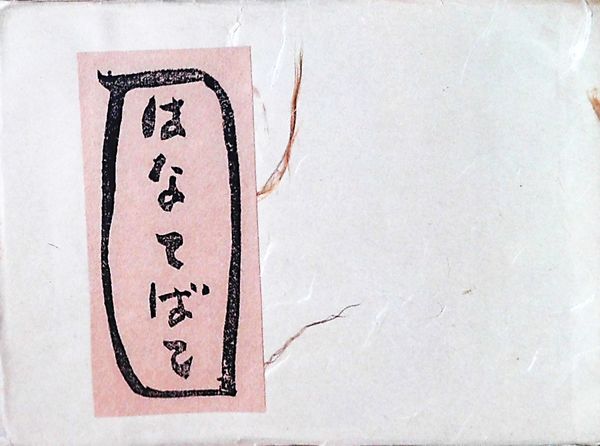 はなてばこ